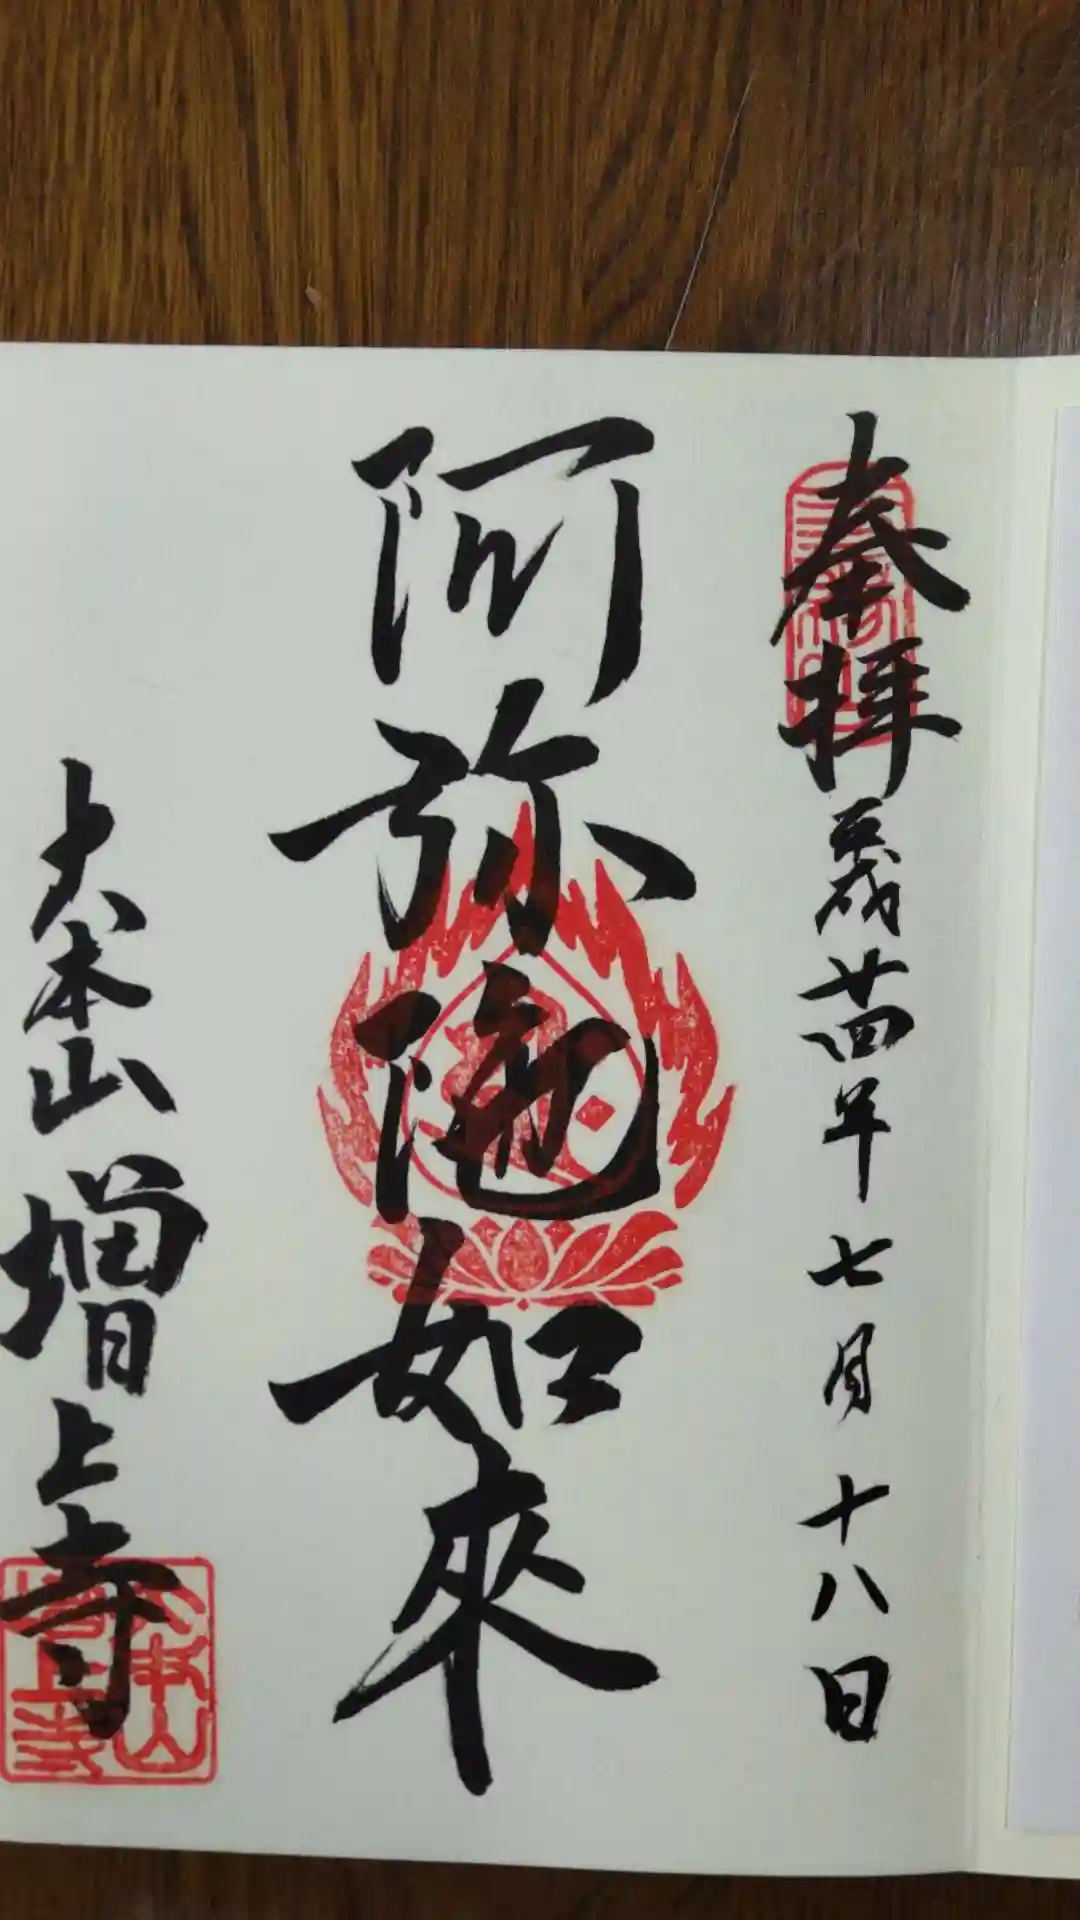 奉拝 平成廿四年七月十八日
阿弥陀如來
大本山 増上寺
大本山
増上寺